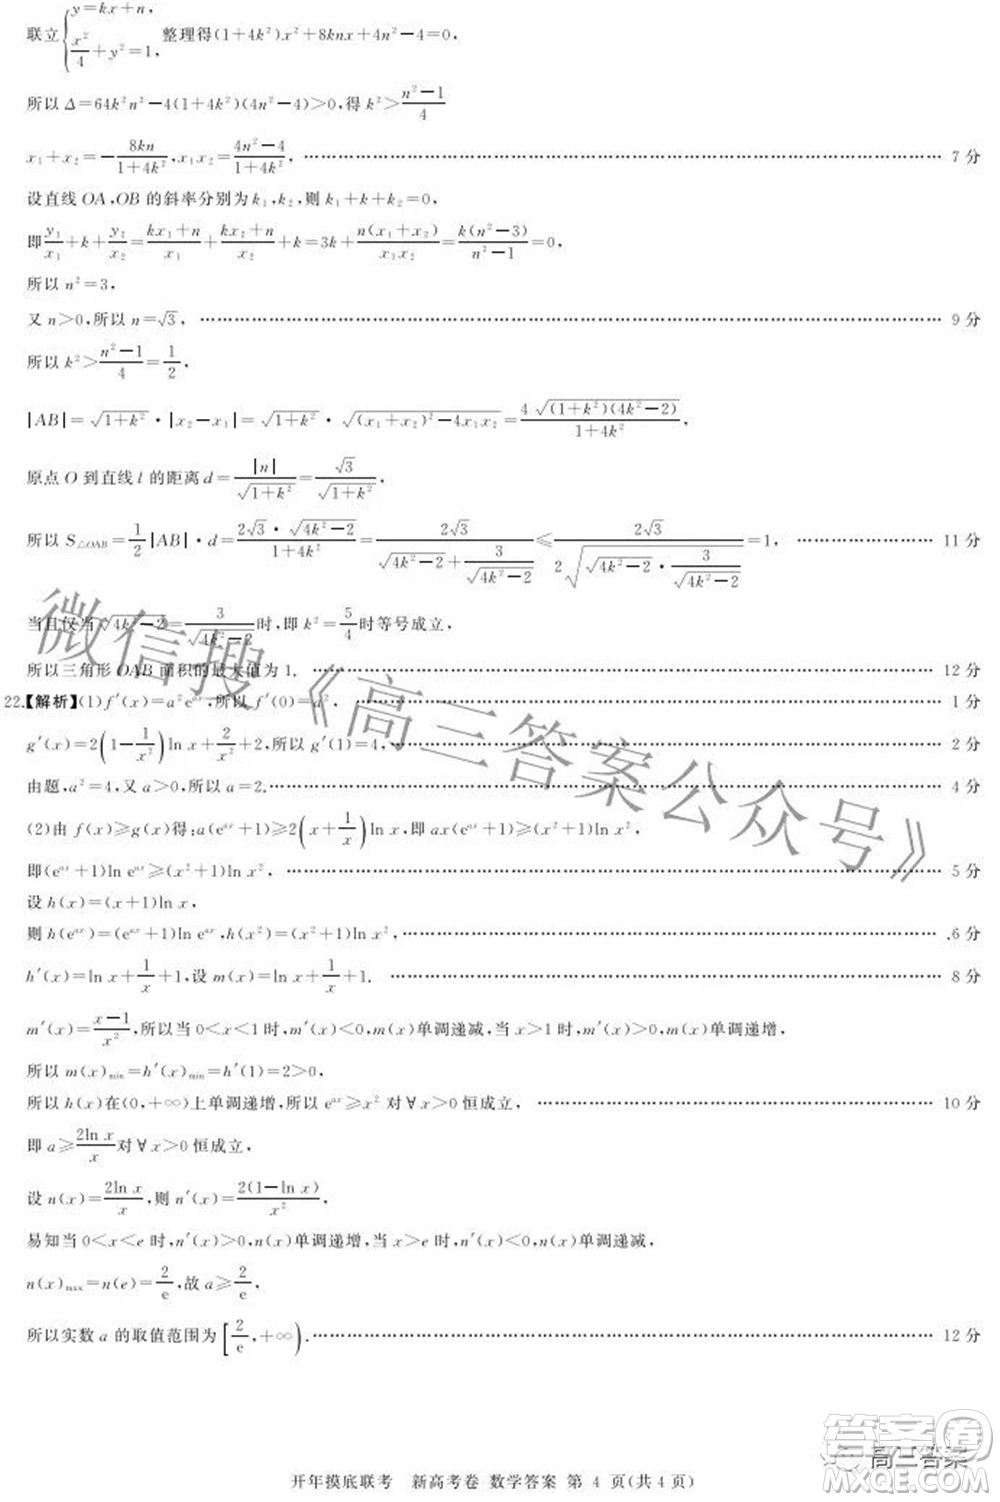 联立{y=kx+n, x²/4+y²=1, 整理得(1+4k²)x²+8knx+4n²−4=0,
所以 Δ=64k²n²−4(1+4k²)(4n²−4)>0,得 k²>(n²−1)/4
x₁+x₂=−8kn/(1+4k²),x₁x₂=(4n²−4)/(1+4k²), ………… 7 分
设直线 OA,OB 的斜率分别为 k₁,k₂,则 k₁+k+k₂=0,
即 y₁/x₁+k+y₂/x₂=(kx₁+n)/x₁+(kx₂+n)/x₂+k=3k+n(x₁+x₂)/(x₁x₂)=k(n²−3)/(n²−1)=0,
所以 n²=3,
又 n>0,所以 n=√3, ………… 9 分
所以 k²>(n²−1)/4=1/2,
|AB|=√(1+k²)·|x₂−x₁|=√(1+k²)·√((x₁+x₂)²−4x₁x₂)=4√((1+k²)(4k²−2))/(1+4k²),
原点 O 到直线 l 的距离 d=|n|/√(1+k²)=√3/√(1+k²),
所以 S△OAB=1/2|AB|·d=2√3·√(4k²−2)/(1+4k²)=2√3/(√(4k²−2)+3/√(4k²−2))≤2√3/(2√(√(4k²−2)·3/√(4k²−2)))=1, ………… 11 分
当且仅当√(4k²−2)=3/√(4k²−2)时,即 k²=5/4时等号成立,
所以三角形 OAB 面积的最大值为 1. ………… 12 分
22.【解析】(1)f′(x)=a²eᵃˣ,所以 f′(0)=a², ………… 1 分
g′(x)=2(1−1/x²)ln x+2/x²+2,所以 g′(1)=4, ………… 2 分
由题,a²=4,又 a>0,所以 a=2. ………… 4 分
(2)由 f(x)≥g(x)得:a(eᵃˣ+1)≥2(x+1/x)ln x,即 ax(eᵃˣ+1)≥(x²+1)ln x²,
即(eᵃˣ+1)ln eᵃˣ≥(x²+1)ln x², ………… 5 分
设 h(x)=(x+1)ln x,
则 h(eᵃˣ)=(eᵃˣ+1)ln eᵃˣ,h(x²)=(x²+1)ln x², ………… .6 分
h′(x)=ln x+1/x+1,设 m(x)=ln x+1/x+1. ………… 8 分
m′(x)=(x−1)/x²,所以当 0<x<1 时,m′(x)<0,m(x)单调递减,当 x>1 时,m′(x)>0,m(x)单调递增,
所以 m(x)min=h′(x)min=h′(1)=2>0,
所以 h(x)在(0,+∞)上单调递增,所以 eᵃˣ≥x² 对∀x>0 恒成立, ………… 10 分
即 a≥2ln x/x对∀x>0 恒成立,
设 n(x)=2ln x/x,则 n′(x)=2(1−ln x)/x²,
易知当 0<x<e 时,n′(x)>0,n(x)单调递增,当 x>e 时,n′(x)<0,n(x)单调递减,
n(x)max=n(e)=2/e,故 a≥2/e,
所以实数 a 的取值范围为[2/e,+∞). ………… 12 分
开年摸底联考 新高考卷 数学答案 第 4 页(共 4 页)
微信搜《高三答案公众号》
高三答案
答案圈
MXQE.COM